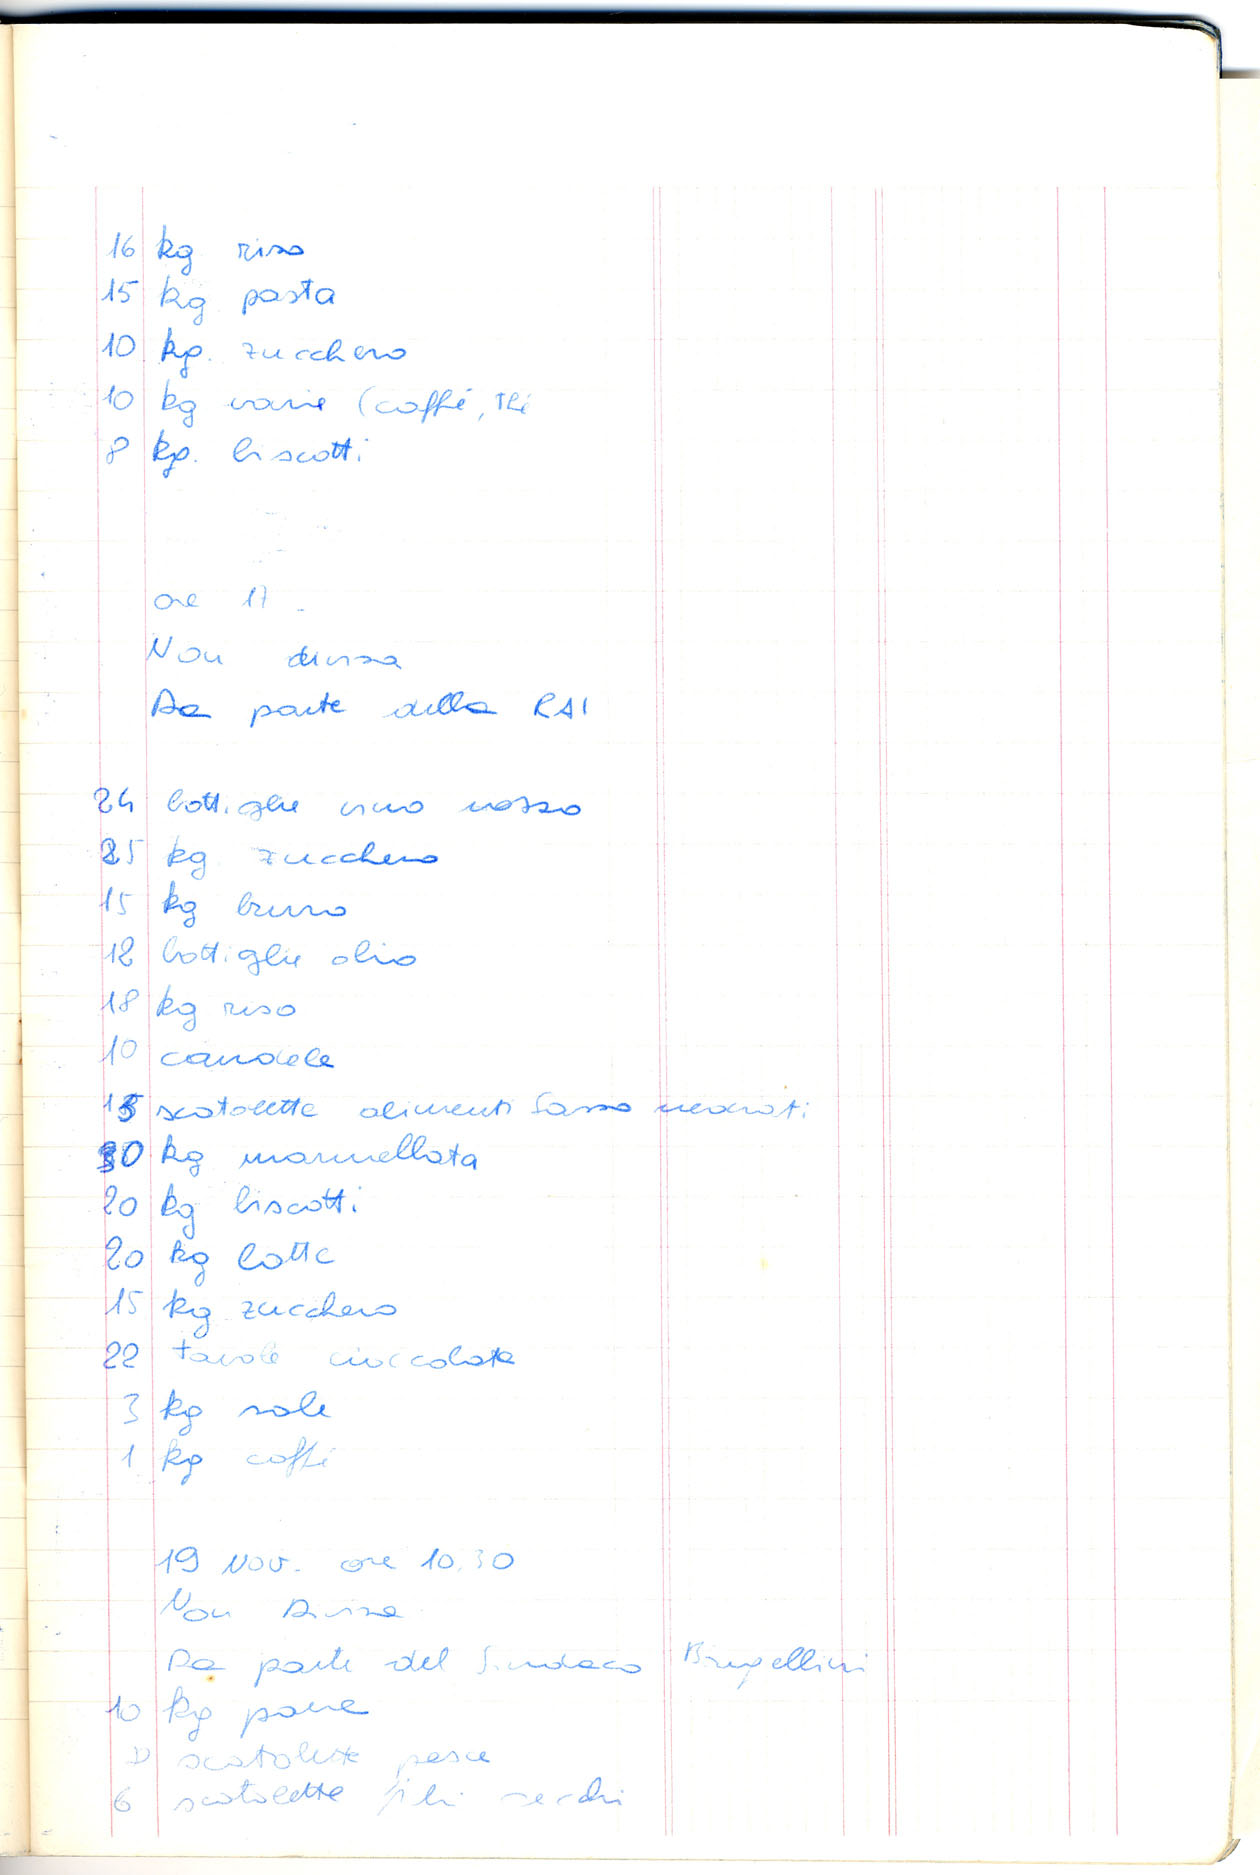 16 kg riso
15 kg pasta
10 kg. zucchero
10 kg varie (caffè, thè
8 kg. biscotti
ore 17.
Non divisa
Da parte della RAI
24 bottiglie vino rosso
25 kg zucchero
15 kg burro
12 bottiglie olio
18 kg riso
10 candele
15 scatolette alimenti Sasso neonati
30 kg marmellata
20 kg biscotti
20 kg latte
15 kg zucchero
22 tavole cioccolata
3 kg sale
1 kg caffè
19 Nov. ore 10.30
Non Divisa
Da parte del Sindaco Bargellini
10 kg pane
scatolette pesce
6 scatolette fichi secchi